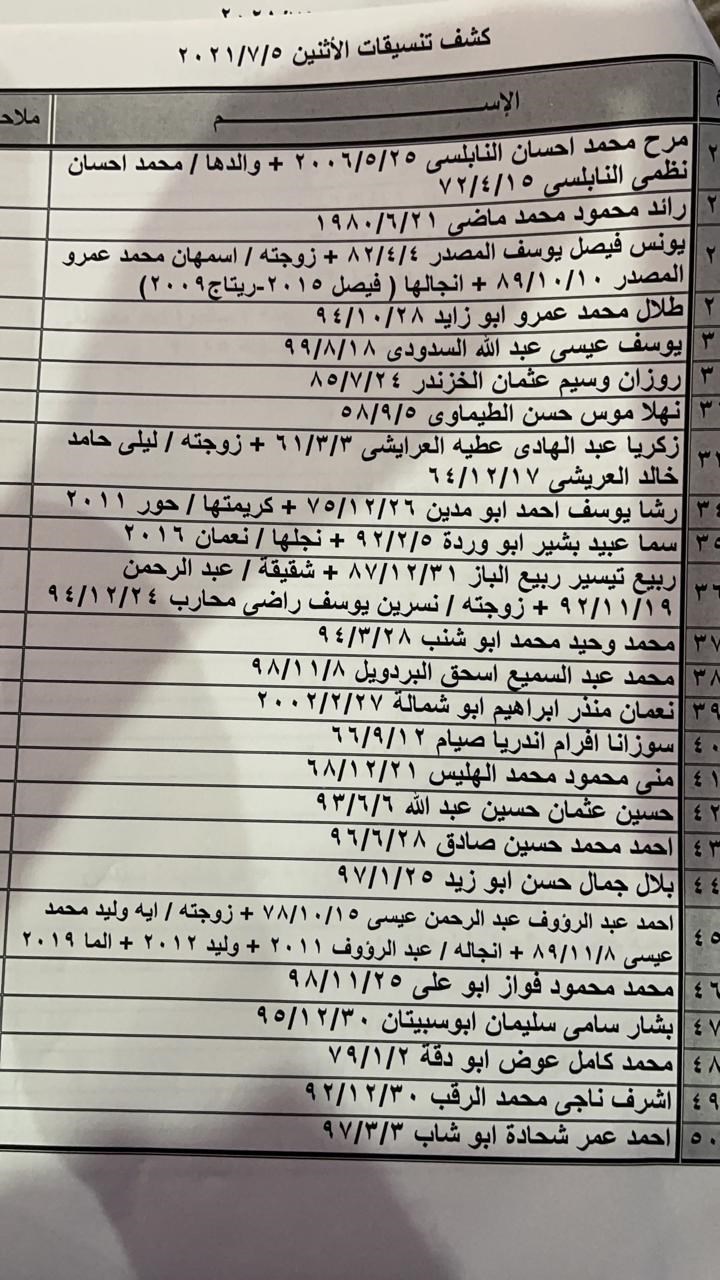 كشف تنسيقات الأثنين ٢٠٢١/٧/٥
الإســــــــــم
ملاحـ
مرح محمد احسان النابلسى ٢٠٠٦/٥/٢٥ + والدها / محمد احسان
نظمى النابلسى ٧٢/٤/١٥
رائد محمود محمد ماضى ١٩٨٠/٦/٢١
يونس فيصل يوسف المصدر ٨٢/٤/٤ + زوجته / اسمهان محمد عمرو
المصدر ٨٩/١٠/١٠ + انجالها ( فيصل ٢٠١٥-ريتاج٢٠٠٩)
طلال محمد عمرو ابو زايد ٩٤/١٠/٢٨
يوسف عيسى عبد الله السدودى ٩٩/٨/١٨
روزان وسيم عثمان الخزندر ٨٥/٧/٢٤
نهلا موس حسن الطيماوى ٥٨/٩/٥
زكريا عبد الهادى عطيه العرايشى ٦١/٣/٣ + زوجته / ليلى حامد
خالد العريشى ٦٤/١٢/١٧
٣٤ رشا يوسف احمد ابو مدين ٧٥/١٢/٢٦ + كريمتها / حور ٢٠١١
٣٥ سما عبيد بشير ابو وردة ٩٢/٢/٥ + نجلها / نعمان ٢٠١٦
٣٦ ربيع تيسير ربيع الباز ٨٧/١٢/٣١ + شقيقة / عبد الرحمن
٩٢/١١/١٩ + زوجته / نسرين يوسف راضى محارب ٩٤/١٢/٢٤
٣٧ محمد وحيد محمد ابو شنب ٩٤/٣/٢٨
٣٨ محمد عبد السميع اسحق البردويل ٩٨/١١/٨
٣٩ نعمان منذر ابراهيم ابو شمالة ٢٠٠٢/٢/٢٧
٤٠ سوزانا افرام اندريا صيام ٦٦/٩/١٢
٤١ منى محمود محمد الهليس ٦٨/١٢/٢١
٤٢ حسين عثمان حسين عبد الله ٩٣/٦/٦
٤٣ احمد محمد حسين صادق ٩٦/٦/٢٨
٤٤ بلال جمال حسن ابو زيد ٩٧/١/٢٥
٤٥ احمد عبد الرؤوف عبد الرحمن عيسى ٧٨/١٠/١٥ + زوجته / ايه وليد محمد
عيسى ٨٩/١١/٨ + انجاله / عبد الرؤوف ٢٠١١ + وليد ٢٠١٢ + الما ٢٠١٩
٤٦ محمد محمود فواز ابو على ٩٨/١١/٢٥
٤٧ بشار سامى سليمان ابوسبيتان ٩٥/١٢/٣٠
٤٨ محمد كامل عوض ابو دقة ٧٩/١/٢
٤٩ اشرف ناجى محمد الرقب ٩٢/١٢/٣٠
٥٠ احمد عمر شحادة ابو شاب ٩٧/٣/٣